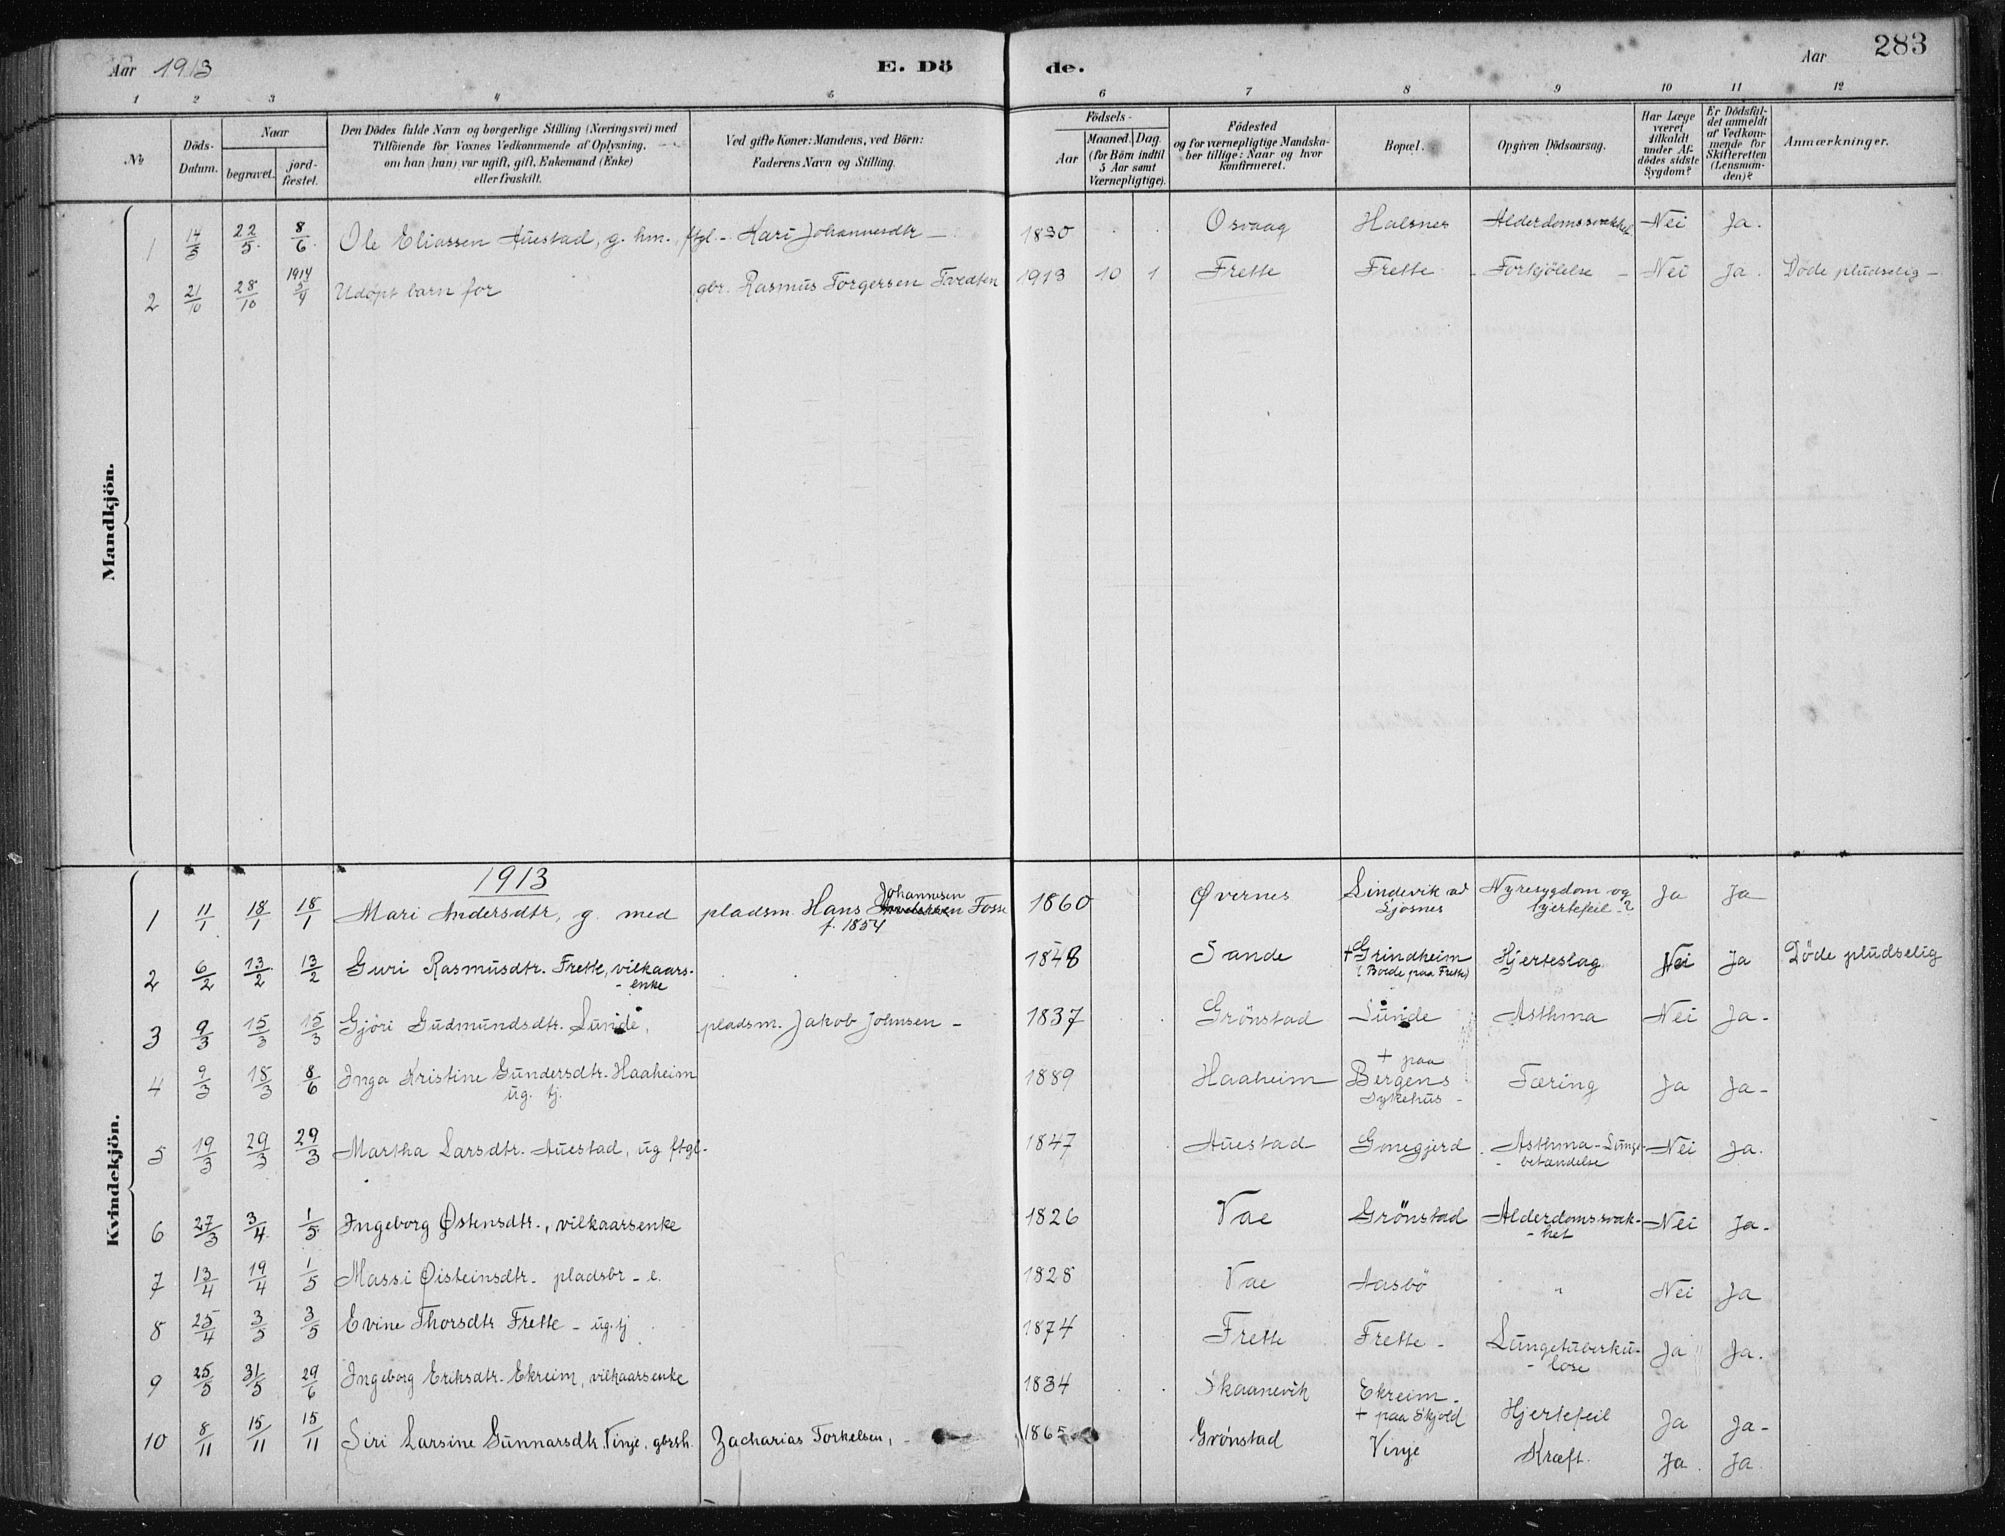 Aar 1913
E. Dö
de.
Aar
283
1 2 3 4 5 6 7 8 9 10 11 12
No
Döds-
Datum.
Naar
begravet.
jord-
fæstet.
Den Dödes fulde Navn og borgerlige Stilling (Næringsvei) med
Tilföiende for Voxnes Vedkommende af Oplysning,
om han (hun) var ugift, gift, Enkemand (Enke)
eller fraskilt.
Ved gifte Koner: Mandens, ved Börn:
Faderens Navn og Stilling.
Födsels-
Aar
Maaned. Dag.
(for Börn indtil
5 Aar samt
Værnepligtige).
Födested
og for værnepligtige Mandska-
ber tillige: Naar og hvor
konfirmeret.
Bopæl.
Opgiven Dödsaarsag.
Har Læge
været
tilkaldt
under Af-
dödes sidste
Sygdom?
Er Dödsfal-
det anmeldt
af Vedkom-
mende for
Skifteretten
(Lensman-
den)?
Anmærkninger.
Mandkjön.
1 14/5 22/5. 8/6. Ole Eliassen Auestad, g. hm. ftgl.- Kari Johannesdtr - 1830 Osvaag Halsnes Alderdomssvakhet Nei Ja.
2 21/10 28/10 1914 5/4 Udöpt barn for gbr. Rasmus Torgersen Tvedten 1913 10 1 Frette Frette - Forkjölelse - Nei Ja. Døde pludselig -
Kvindekjön.
1913
1 11/1 18/1 18/1 Mari Andersdtr, g. med pladsm. Hans Johannesen Fosse 1860 Øvernes Lindevik ad Nyresygdom og Ja Ja
f. 1854 Sjøsnes hjertefeil ?
2 6/2 13/2 13/2 Guri Rasmusdtr. Frette, vilkaars- 1848 Sande + Grindheim Hjerteslag Nei Ja Døde pludselig
- enke (Boede paa Frette)
3 9/3 15/3 15/3 Gjöri Gudmundsdtr. Lunde, pladsm. Jakob Johnsen - 1837 Grönstad Lunde Asthma Nei Ja-
+ paa
4 9/3 18/3 8/6 Inga Kristine Gundersdtr. Haaheim 1889 Haaheim Bergens Tæring Ja Ja-
ug. tj. Sykehus -
5 19/3 29/3 29/3 Martha Larsdtr. Auestad, ug ftgl- 1847 Auestad Gonegjerd Asthma - Lunge- Nei Ja.
- betændelse
6 27/3 3/4 1/5 Ingeborg Østensdtr., vilkaarsenke 1826 Vae Grönstad Alderdomssvak- Nei Ja-
- het
7 13/4 19/4 1/5 Massi Øisteinsdtr. pladsbr - e. 1828 Vae Aasbö " Nei Ja
8 25/4 3/5 3/5 Evine Thorsdtr Frette - ug. tj 1874 Frette Frette - Lungetuberku- Ja Ja.
- lose
9 25/5 31/5 29/6 Ingeborg Eriksdtr. Ekreim, vilkaarsenke 1834 Skaanevik Ekreim - Hjertefeil Ja Ja-
+ paa Skjold
10 8/11 15/11 15/11 Siri Larsine Gunnarsdtr. Vinje, gbrsh. Zacharias Torkelsen, 1865 Grönstad Vinje Kræft. Ja. Ja.